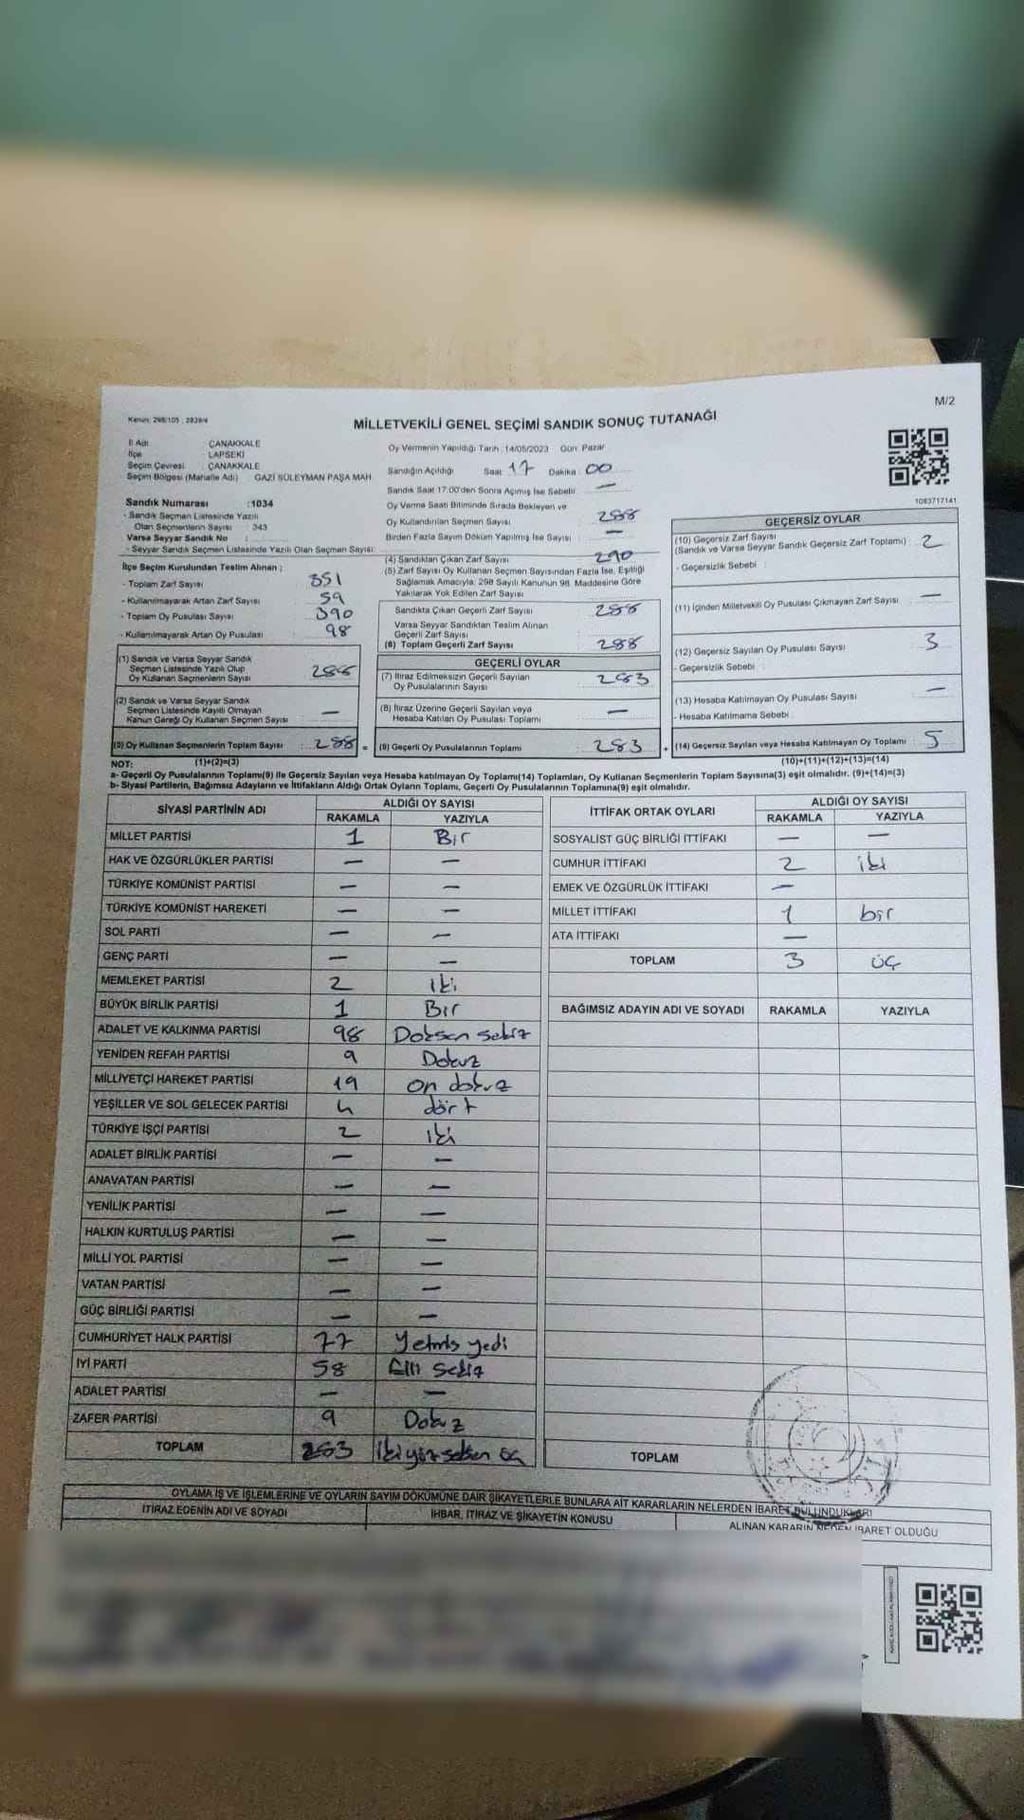 M/2
Kanun: 298/105 ; 2839/4
MİLLETVEKİLİ GENEL SEÇİMİ SANDIK SONUÇ TUTANAĞI
İl Adı : ÇANAKKALE
İlçe : LAPSEKİ
Seçim Çevresi : ÇANAKKALE
Seçim Bölgesi (Mahalle Adı) : GAZİ SÜLEYMAN PAŞA MAH
Sandık Numarası :1034
- Sandık Seçmen Listesinde Yazılı
Olan Seçmenlerin Sayısı : 343
Varsa Seyyar Sandık No :
- Seyyar Sandık Seçmen Listesinde Yazılı Olan Seçmen Sayısı:
İlçe Seçim Kurulundan Teslim Alınan :
- Toplam Zarf Sayısı : 351
- Kullanılmayarak Artan Zarf Sayısı : 59
- Toplam Oy Pusulası Sayısı : 390
- Kullanılmayarak Artan Oy Pusulası : 98
(1) Sandık ve Varsa Seyyar Sandık
Seçmen Listesinde Yazılı Olup
Oy Kullanan Seçmenlerin Sayısı 288
(2) Sandık ve Varsa Seyyar Sandık
Seçmen Listesinde Kayıtlı Olmayan
Kanun Gereği Oy Kullanan Seçmen Sayısı —
(3) Oy Kullanan Seçmenlerin Toplam Sayısı 288 =
(1)+(2)=(3)
Oy Vermenin Yapıldığı Tarih :14/05/2023 Gün: Pazar
Sandığın Açıldığı Saat 17 Dakika 00
Sandık Saat 17.00'den Sonra Açılmış İse Sebebi : —
Oy Verme Saati Bitiminde Sırada Bekleyen ve
Oy Kullandırılan Seçmen Sayısı 288
Birden Fazla Sayım Döküm Yapılmış İse Sayısı : —
(4) Sandıktan Çıkan Zarf Sayısı 290
(5) Zarf Sayısı Oy Kullanan Seçmen Sayısından Fazla İse, Eşitliği
Sağlamak Amacıyla; 298 Sayılı Kanunun 98. Maddesine Göre
Yakılarak Yok Edilen Zarf Sayısı
Sandıkta Çıkan Geçerli Zarf Sayısı 288
Varsa Seyyar Sandıktan Teslim Alınan
Geçerli Zarf Sayısı
(6) Toplam Geçerli Zarf Sayısı 288
GEÇERLİ OYLAR
(7) İtiraz Edilmeksizin Geçerli Sayılan
Oy Pusulalarının Sayısı 283
(8) İtiraz Üzerine Geçerli Sayılan veya
Hesaba Katılan Oy Pusulası Toplamı —
(9) Geçerli Oy Pusulalarının Toplamı 283 +
1083717141
GEÇERSİZ OYLAR
(10) Geçersiz Zarf Sayısı
(Sandık ve Varsa Seyyar Sandık Geçersiz Zarf Toplamı) 2
- Geçersizlik Sebebi :
(11) İçinden Milletvekili Oy Pusulası Çıkmayan Zarf Sayısı —
(12) Geçersiz Sayılan Oy Pusulası Sayısı 3
- Geçersizlik Sebebi :
(13) Hesaba Katılmayan Oy Pusulası Sayısı —
- Hesaba Katılmama Sebebi :
(14) Geçersiz Sayılan veya Hesaba Katılmayan Oy Toplamı 5
(10)+(11)+(12)+(13)=(14)
NOT:
a- Geçerli Oy Pusulalarının Toplamı(9) ile Geçersiz Sayılan veya Hesaba katılmayan Oy Toplamı(14) Toplamları, Oy Kullanan Seçmenlerin Toplam Sayısına(3) eşit olmalıdır. (9)+(14)=(3)
b- Siyasi Partilerin, Bağımsız Adayların ve İttifakların Aldığı Ortak Oyların Toplamı, Geçerli Oy Pusulalarının Toplamına(9) eşit olmalıdır.
SİYASİ PARTİNİN ADI ALDIĞI OY SAYISI
RAKAMLA YAZIYLA
MİLLET PARTİSİ 1 Bir
HAK VE ÖZGÜRLÜKLER PARTİSİ — —
TÜRKİYE KOMÜNİST PARTİSİ — —
TÜRKİYE KOMÜNİST HAREKETİ — —
SOL PARTİ — —
GENÇ PARTİ — —
MEMLEKET PARTİSİ 2 iki
BÜYÜK BİRLİK PARTİSİ 1 Bir
ADALET VE KALKINMA PARTİSİ 98 Doksan sekiz
YENİDEN REFAH PARTİSİ 9 Dokuz
MİLLİYETÇİ HAREKET PARTİSİ 19 on dokuz
YEŞİLLER VE SOL GELECEK PARTİSİ 4 dört
TÜRKİYE İŞÇİ PARTİSİ 2 iki
ADALET BİRLİK PARTİSİ — —
ANAVATAN PARTİSİ — —
YENİLİK PARTİSİ — —
HALKIN KURTULUŞ PARTİSİ — —
MİLLİ YOL PARTİSİ — —
VATAN PARTİSİ — —
GÜÇ BİRLİĞİ PARTİSİ — —
CUMHURİYET HALK PARTİSİ 77 Yetmiş yedi
İYİ PARTİ 58 Elli sekiz
ADALET PARTİSİ — —
ZAFER PARTİSİ 9 Dokuz
TOPLAM 283 İkiyüz seksen üç
İTTİFAK ORTAK OYLARI ALDIĞI OY SAYISI
RAKAMLA YAZIYLA
SOSYALİST GÜÇ BİRLİĞİ İTTİFAKI — —
CUMHUR İTTİFAKI 2 iki
EMEK VE ÖZGÜRLÜK İTTİFAKI —
MİLLET İTTİFAKI 1 bir
ATA İTTİFAKI —
TOPLAM 3 üç
BAĞIMSIZ ADAYIN ADI VE SOYADI RAKAMLA YAZIYLA
TOPLAM
OYLAMA İŞ VE İŞLEMLERİNE VE OYLARIN SAYIM DÖKÜMÜNE DAİR ŞİKAYETLERLE BUNLARA AİT KARARLARIN NELERDEN İBARET BULUNDUKLARI
İTİRAZ EDENİN ADI VE SOYADI İHBAR, İTİRAZ VE ŞİKAYETİN KONUSU ALINAN KARARIN NEDEN İBARET OLDUĞU